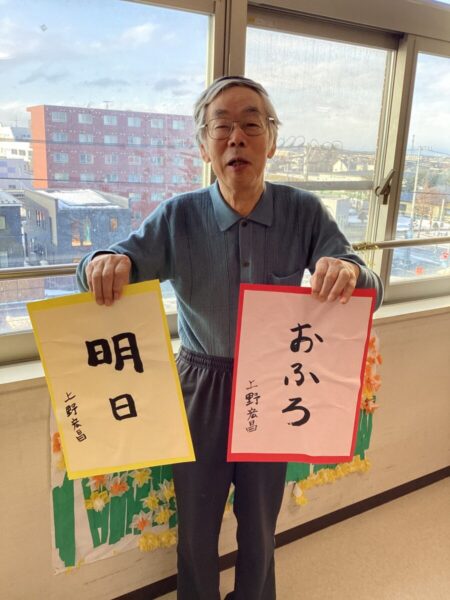 明日
上野宏昌
おふろ
上野宏昌